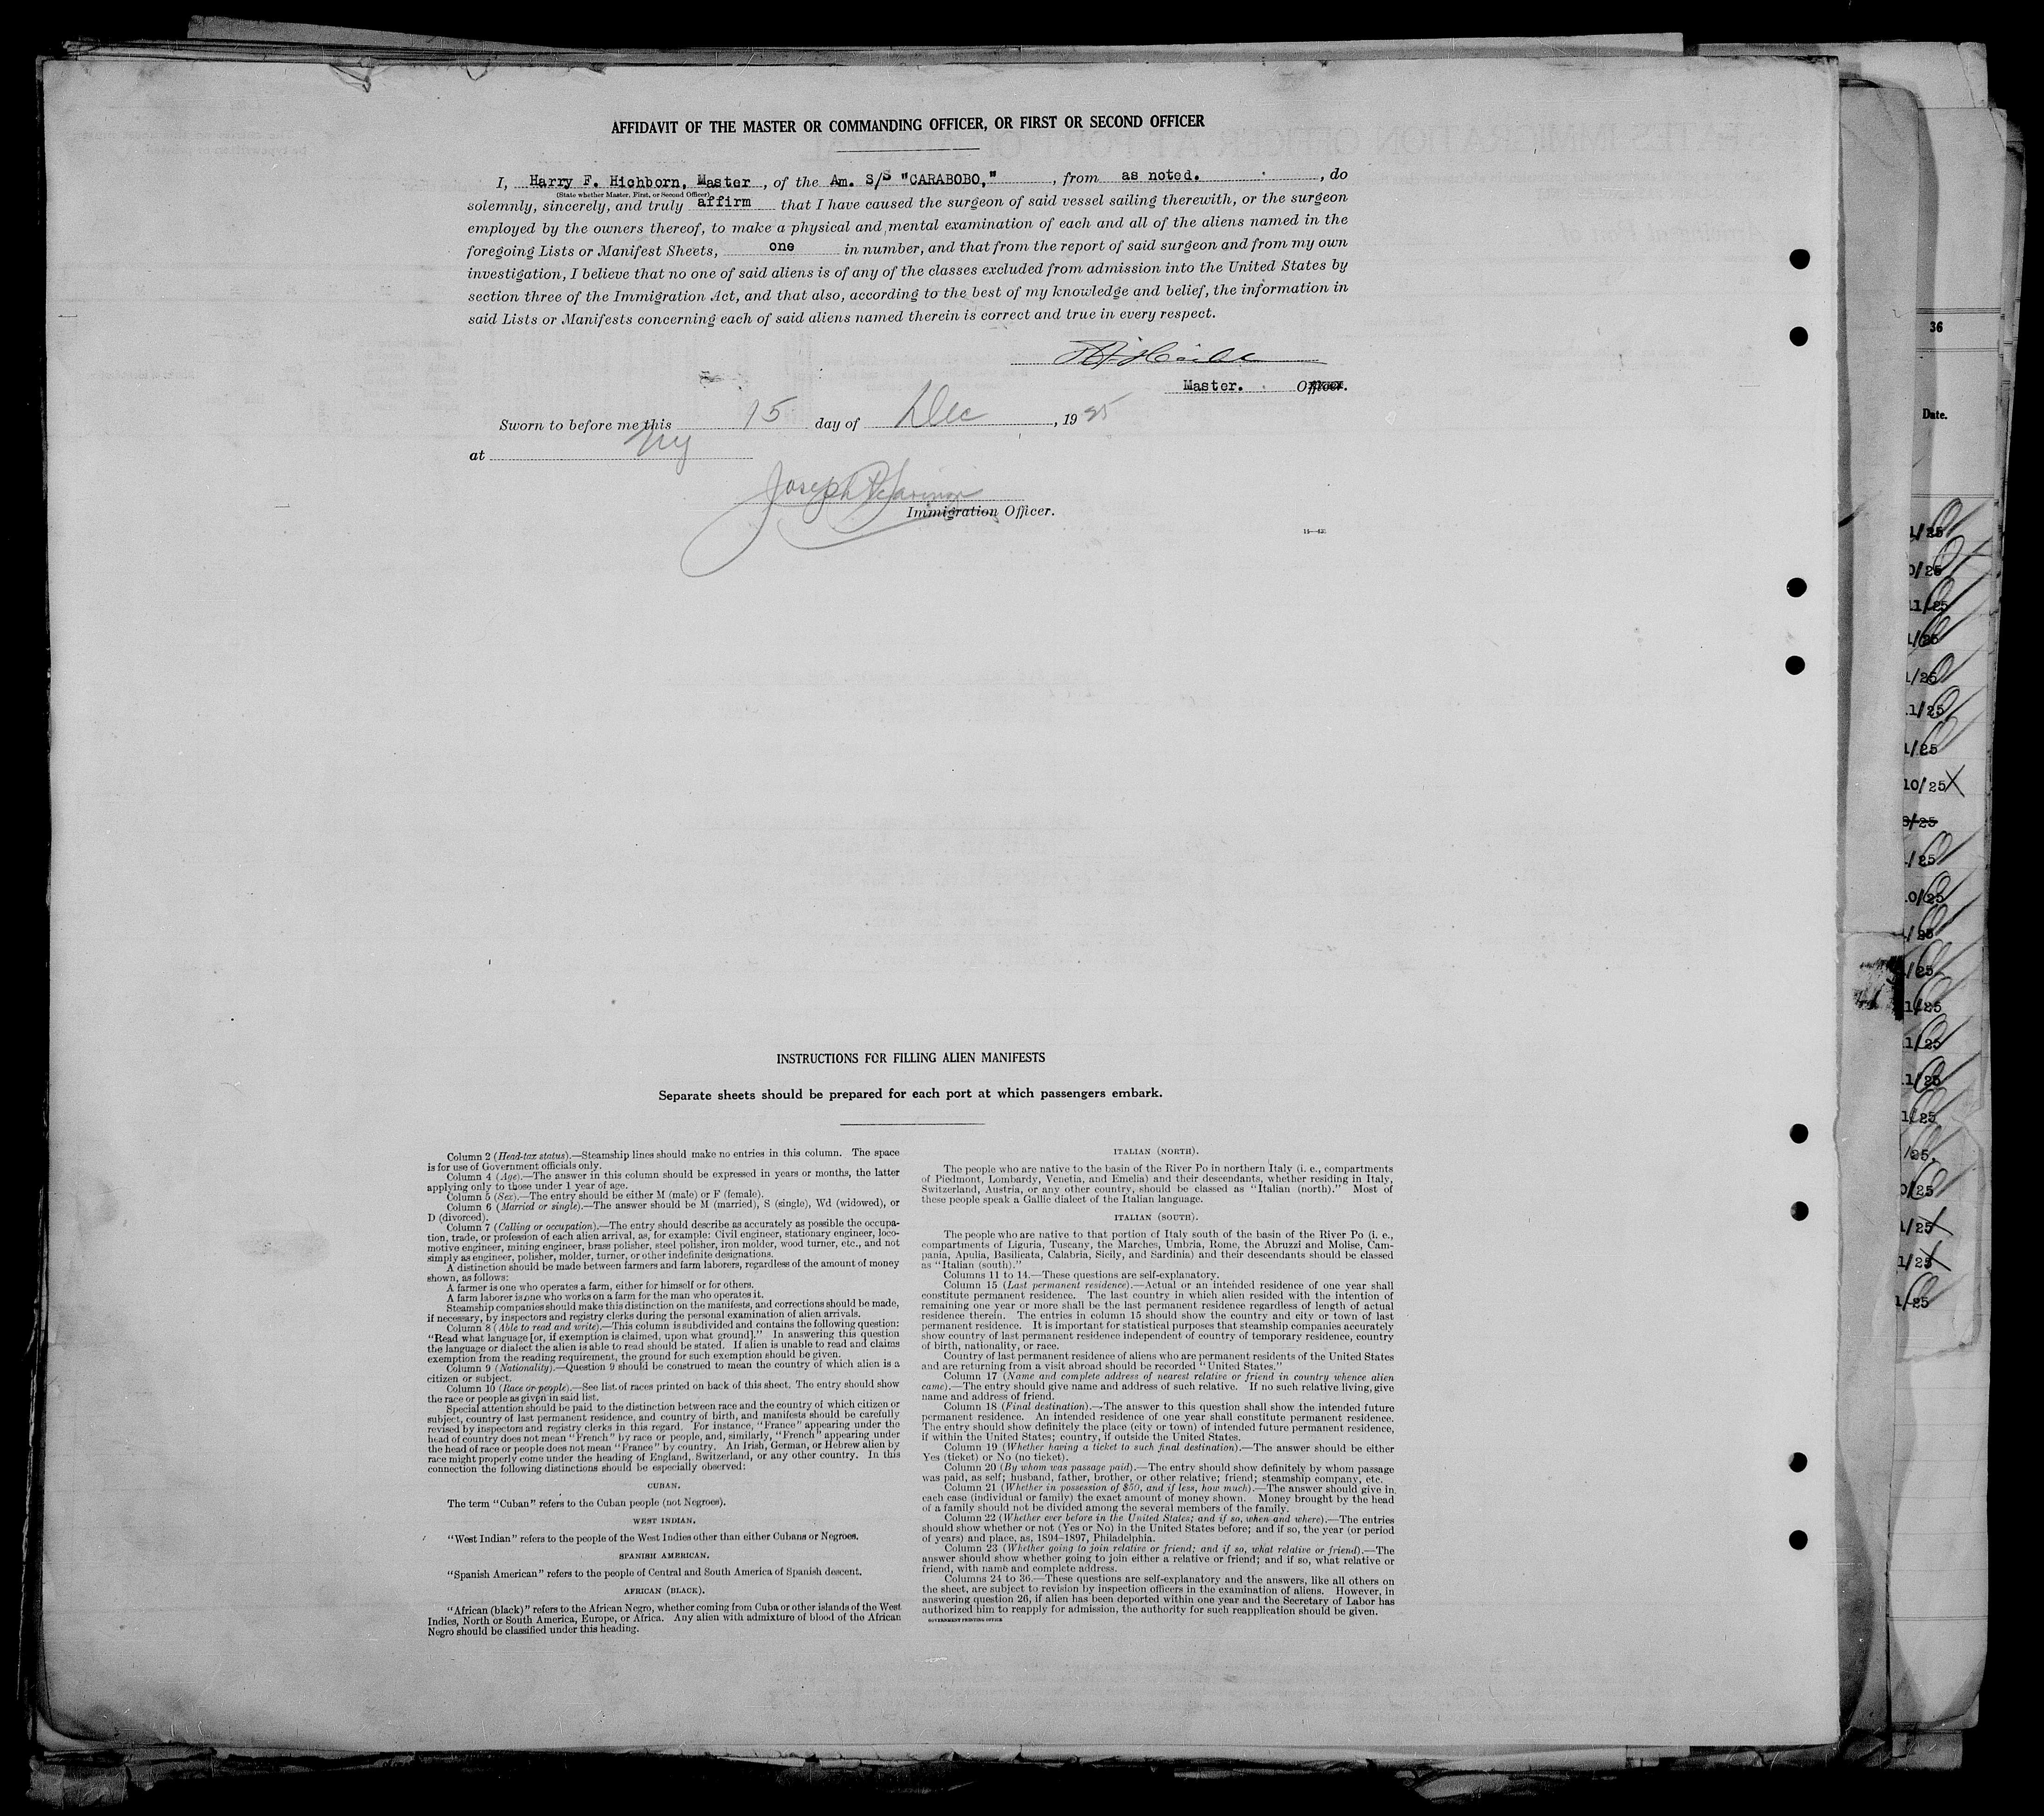 AFFIDAVIT OF THE MASTER OR COMMANDING OFFICER, OR FIRST OR SECOND OFFICER
I, Harry F. Hichborn, Master, of the Am. S/S "CARABOBO," , from as noted. , do
(State whether Master, First, or Second Officer)
solemnly, sincerely, and truly affirm that I have caused the surgeon of said vessel sailing therewith, or the surgeon
employed by the owners thereof, to make a physical and mental examination of each and all of the aliens named in the
foregoing Lists or Manifest Sheets, one in number, and that from the report of said surgeon and from my own
investigation, I believe that no one of said aliens is of any of the classes excluded from admission into the United States by
section three of the Immigration Act, and that also, according to the best of my knowledge and belief, the information in
said Lists or Manifests concerning each of said aliens named therein is correct and true in every respect.
Master. Officer.
Sworn to before me this 15 day of Dec , 1925
at NY
Joseph
Immigration Officer.
36
Date.
1/25
0/25
11/25
1/25
1/25
11/25
1/25
10/25
8/25
1/25
10/25
1/25
1/25
1/25
11/25
11/25
1/25
/25
0/25
1/25
1/25
1/25
INSTRUCTIONS FOR FILLING ALIEN MANIFESTS
Separate sheets should be prepared for each port at which passengers embark.
Column 2 (Head-tax status).—Steamship lines should make no entries in this column. The space
is for use of Government officials only.
Column 4 (Age).—The answer in this column should be expressed in years or months, the latter
applying only to those under 1 year of age.
Column 5 (Sex).—The entry should be either M (male) or F (female).
Column 6 (Married or single).—The answer should be M (married), S (single), Wd (widowed), or
D (divorced).
Column 7 (Calling or occupation).—The entry should describe as accurately as possible the occupa-
tion, trade, or profession of each alien arrival, as, for example: Civil engineer, stationary engineer, loco-
motive engineer, mining engineer, brass polisher, steel polisher, iron molder, wood turner, etc., and not
simply as engineer, polisher, molder, turner, or other indefinite designations.
A distinction should be made between farmers and farm laborers, regardless of the amount of money
shown, as follows:
A farmer is one who operates a farm, either for himself or for others.
A farm laborer is one who works on a farm for the man who operates it.
Steamship companies should make this distinction on the manifests, and corrections should be made,
if necessary, by inspectors and registry clerks during the personal examination of alien arrivals.
Column 8 (Able to read and write).—This column is subdivided and contains the following question:
"Read what language [or, if exemption is claimed, upon what ground]." In answering this question
the language or dialect the alien is able to read should be stated. If alien is unable to read and claims
exemption from the reading requirement, the ground for such exemption should be given.
Column 9 (Nationality).—Question 9 should be construed to mean the country of which alien is a
citizen or subject.
Column 10 (Race or people).—See list of races printed on back of this sheet. The entry should show
the race or people as given in said list.
Special attention should be paid to the distinction between race and the country of which citizen or
subject, country of last permanent residence, and country of birth, and manifests should be carefully
revised by inspectors and registry clerks in this regard. For instance, "France" appearing under the
head of country does not mean "French" by race or people, and, similarly, "French" appearing under
the head of race or people does not mean "France" by country. An Irish, German, or Hebrew alien by
race might properly come under the heading of England, Switzerland, or any other country. In this
connection the following distinctions should be especially observed:
CUBAN.
The term "Cuban" refers to the Cuban people (not Negroes).
WEST INDIAN.
"West Indian" refers to the people of the West Indies other than either Cubans or Negroes.
SPANISH AMERICAN.
"Spanish American" refers to the people of Central and South America of Spanish descent.
AFRICAN (BLACK).
"African (black)" refers to the African Negro, whether coming from Cuba or other islands of the West
Indies, North or South America, Europe, or Africa. Any alien with admixture of blood of the African
Negro should be classified under this heading.
ITALIAN (NORTH).
The people who are native to the basin of the River Po in northern Italy (i. e., compartments
of Piedmont, Lombardy, Venetia, and Emelia) and their descendants, whether residing in Italy,
Switzerland, Austria, or any other country, should be classed as "Italian (north)." Most of
these people speak a Gallic dialect of the Italian language.
ITALIAN (SOUTH).
The people who are native to that portion of Italy south of the basin of the River Po (i. e.,
compartments of Liguria, Tuscany, the Marches, Umbria, Rome, the Abruzzi and Molise, Cam-
pania, Apulia, Basilicata, Calabria, Sicily, and Sardinia) and their descendants should be classed
as "Italian (south)."
Columns 11 to 14.—These questions are self-explanatory.
Column 15 (Last permanent residence).—Actual or an intended residence of one year shall
constitute permanent residence. The last country in which alien resided with the intention of
remaining one year or more shall be the last permanent residence regardless of length of actual
residence therein. The entries in column 15 should show the country and city or town of last
permanent residence. It is important for statistical purposes that steamship companies accurately
show country of last permanent residence independent of country of temporary residence, country
of birth, nationality, or race.
Country of last permanent residence of aliens who are permanent residents of the United States
and are returning from a visit abroad should be recorded "United States."
Column 17 (Name and complete address of nearest relative or friend in country whence alien
came).—The entry should give name and address of such relative. If no such relative living, give
name and address of friend.
Column 18 (Final destination).—The answer to this question shall show the intended future
permanent residence. An intended residence of one year shall constitute permanent residence.
The entry should show definitely the place (city or town) of intended future permanent residence,
if within the United States; country, if outside the United States.
Column 19 (Whether having a ticket to such final destination).—The answer should be either
Yes (ticket) or No (no ticket).
Column 20 (By whom was passage paid).—The entry should show definitely by whom passage
was paid, as self; husband, father, brother, or other relative; friend; steamship company, etc.
Column 21 (Whether in possession of $50, and if less, how much).—The answer should give in
each case (individual or family) the exact amount of money shown. Money brought by the head
of a family should not be divided among the several members of the family.
Column 22 (Whether ever before in the United States; and if so, when and where).—The entries
should show whether or not (Yes or No) in the United States before; and if so, the year (or period
of years) and place, as, 1894–1897, Philadelphia.
Column 23 (Whether going to join relative or friend; and if so, what relative or friend).—The
answer should show whether going to join either a relative or friend; and if so, what relative or
friend, with name and complete address.
Columns 24 to 36.—These questions are self-explanatory and the answers, like all others on
the sheet, are subject to revision by inspection officers in the examination of aliens. However, in
answering question 26, if alien has been deported within one year and the Secretary of Labor has
authorized him to reapply for admission, the authority for such reapplication should be given.
GOVERNMENT PRINTING OFFICE